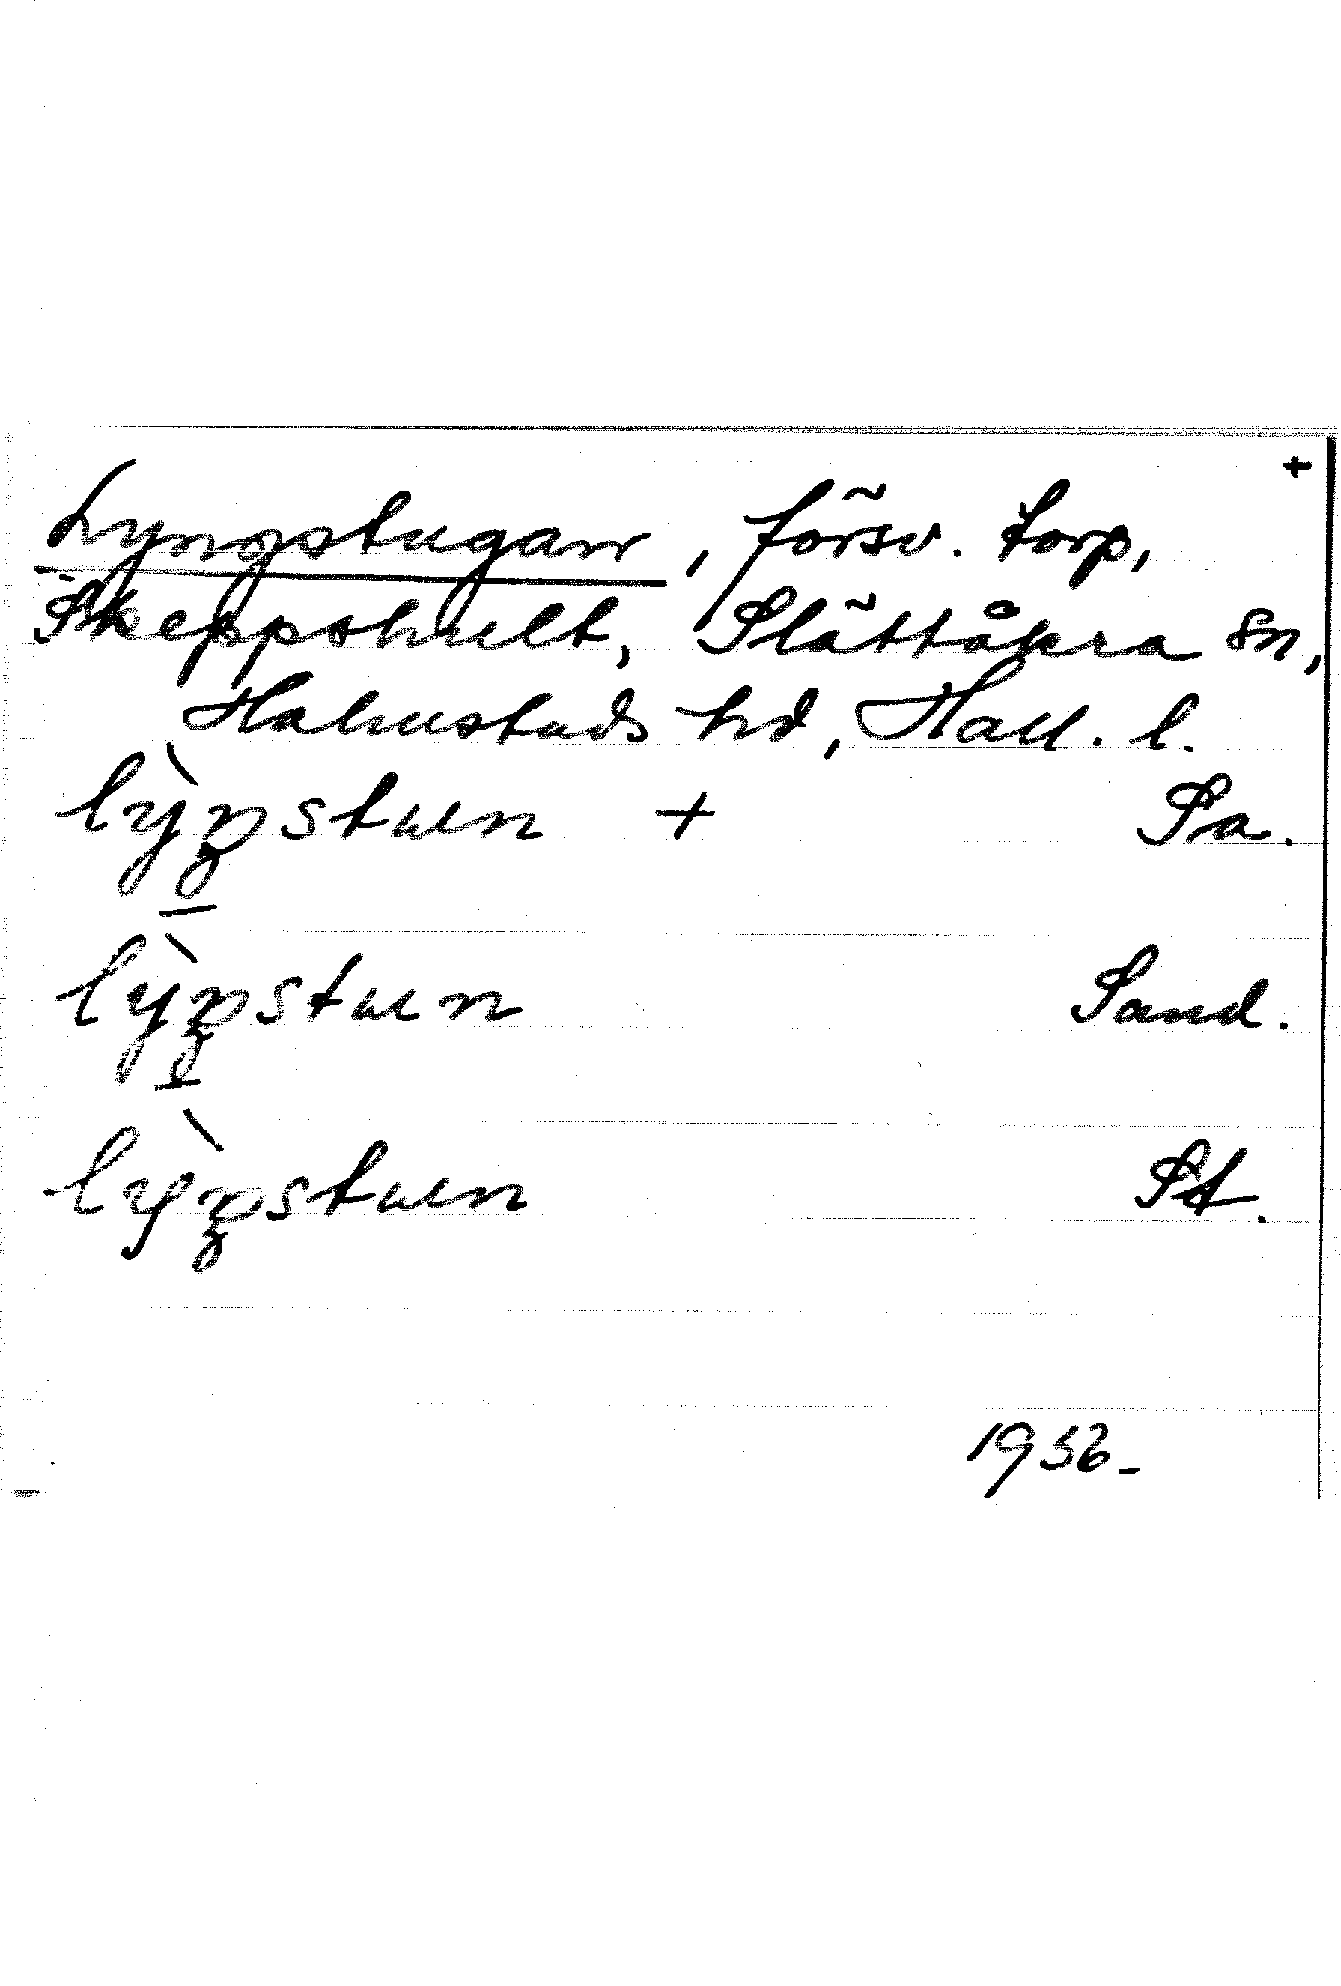 +
Lyngstugan, försv. torp,
Skeppshult, Slättåkra sn,
Halmstads hd, Hall. l.
lỳŋstuen + Sa.
lỳŋstuen Sand.
lỳŋstuen St.
1956_